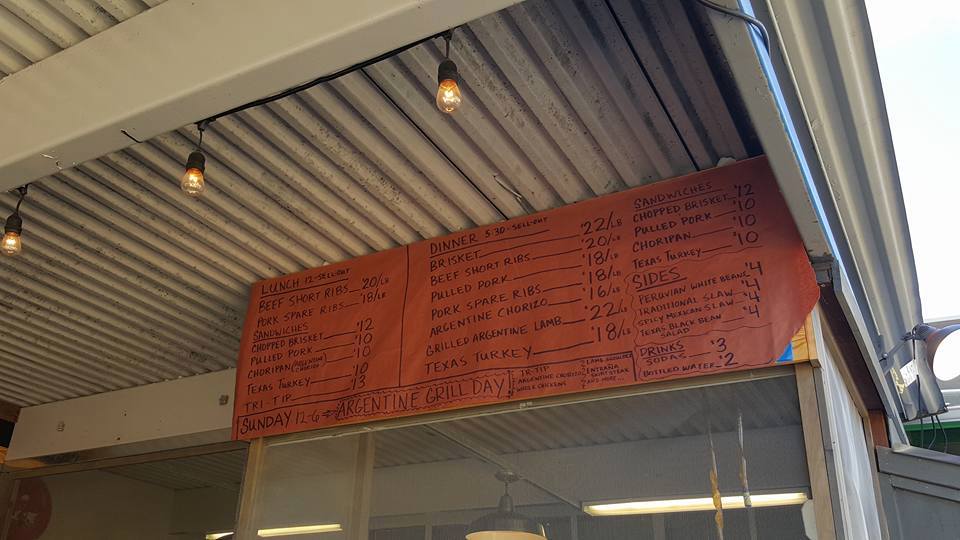 LUNCH 12-SELL-OUT
BEEF SHORT RIBS 20/LB
PORK SPARE RIBS 18/LB
SANDWICHES
CHOPPED BRISKET $12
PULLED PORK $10
CHORIPAN (ARGENTINE CHORIZO) $10
TEXAS TURKEY $10
TRI-TIP $13
DINNER 5:30-SELL-OUT
BRISKET $22/LB
BEEF SHORT RIBS $20/LB
PULLED PORK $18/LB
PORK SPARE RIBS $18/LB
ARGENTINE CHORIZO $16/LB
GRILLED ARGENTINE LAMB $22/LB
TEXAS TURKEY $18/LB
SANDWICHES
CHOPPED BRISKET $12
PULLED PORK $10
CHORIPAN $10
TEXAS TURKEY $10
SIDES
PERUVIAN WHITE BEANS $4
TRADITIONAL SLAW $4
SPICY MEXICAN SLAW $4
TEXAS BLACK BEAN $4
SALAD
DRINKS
SODAS $3
BOTTLED WATER $2
SUNDAY 12-6 ⇒ ARGENTINE GRILL DAY
TRI-TIP
ARGENTINE CHORIZO
WHOLE CHICKENS
LAMB SHOULDER
ENTRAÑA
SKIRT STEAK
AND MORE...